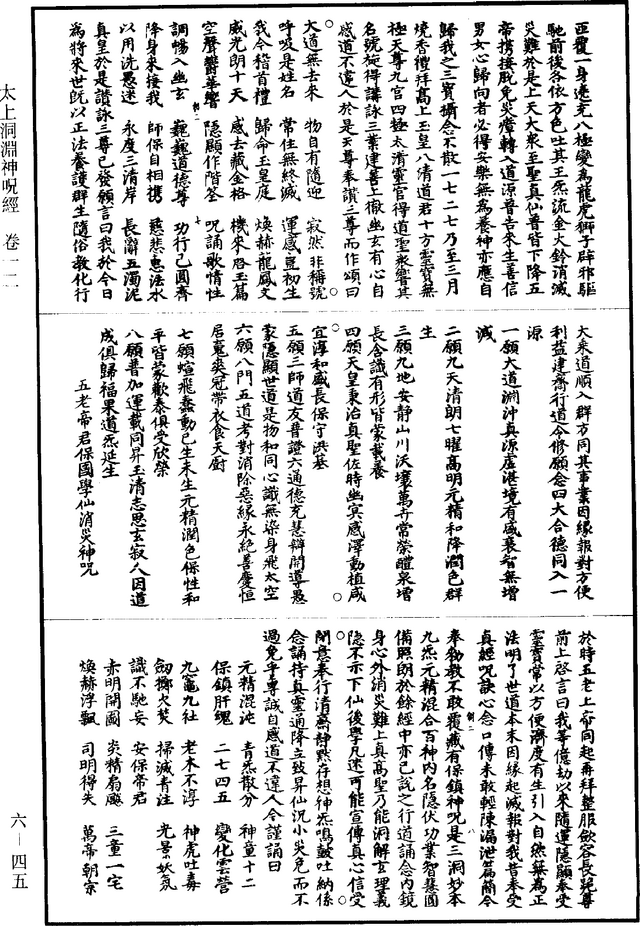 太上洞淵神呪經 卷一一
六—四五
匝覆一身遶充八極變為龍虎獅子辟邪驅
馳前後各依方色吐其王炁流金火鈴消滅
災難於是上天大衆至聖真仙普皆下降五
帝携接脫免災癘轉入道源普告來生善信
男女心歸向者必得安樂無為養神亦應自
歸我之三寶攝念不散一七二七乃至三月
燒香禮拜高上玉皇八清道君十方靈寶無
極天尊九宮四極太清靈官得道聖衆響其
名號旋得講詠三業建功上徹幽玄有心自
感道不遠人於是天尊奉讚三尊而作頌曰
大道無去來 物自有隨迎 寂然非稱號
呼吸是姓名 常住無終滅 運感豈初生
我今稽首禮 歸命玉皇庭 煥赫龍鳳文
威光朗十天 威去藏金格 機來啓玉篇
空聲響華響 隱顯作階筌 呪誦歌情性
調暢入幽玄 巍巍道德尊 功行已圓齊
降身來接我 師保自相携 慈悲惠法水
以用洗愚迷 永度三清岸 長辭五濁泥
真皇於是讚詠三尊已發願言曰我於今日
為將來世既以正法養護群生隨俗教化行
大乘道順入群方同其事業因緣報對方便
利益建齋行道令修願念四大合德同入一
源
一願大道淵沖真源虛湛境有盛衰智無增
減
二願九天清朗七曜高明元精和降潤色群
生
三願九地安靜山川沃壤萬卉常榮醴泉增
長含識有形皆蒙載養
四願天皇秉治真聖佐時幽冥感澤動植咸
宜淳和咸長保守洪基
五願三師道友普證六通德充慧辯開導愚
蒙隱顯世道是物和同心識無染身飛太空
六願八門五道考對消除惡緣永絕善慶恒
居寃裘冠帶衣食天廚
七願蜎飛蠢動已生未生元精潤色保性和
平皆蒙歡泰俱受欣榮
八願普加運載同昇玉清志思玄寂人因道
成俱歸福果道炁延生
五老帝君保國學仙消災神呪
於時五老上帝同起再拜整服歛容長跪尊
前上啓言曰我等億劫以來隨運隱顯奉受
靈寶常以方便濟度有生引入自然無為正
法明了世道本末因緣起滅報對我昔奉受
真經呪訣心念口傳未敢輕陳漏泄篇蘭今
奉勅教不敢覆藏有保鎮神呪是三洞妙本
九炁元精混合百神內名隱伏功業智慧圓
備照朗於餘經中亦已說之行道誦念內鏡
身心外消災難上真高聖乃能洞解玄理義
隱不示下仙後學凡迷可能宣傳真心信受
開意奉行清齋靜默存想神炁鳴鼓吐納係
念誦持真靈通降立致昇仙況小災免而不
過免乎專誠自感道不遠人今謹誦曰
元精混沌 青炁散分 神童十二
保鎮肝魂 二七四五 變化雲營
九竈九社 老木不淳 神虎吐毒
劒擲火焚 掃滅青注 光景妖氛
識不馳妄 安保帝君
赤明開圖 炎精扇飈 三童一宅
煥赫浮飄 司明得失 萬帝朝宗